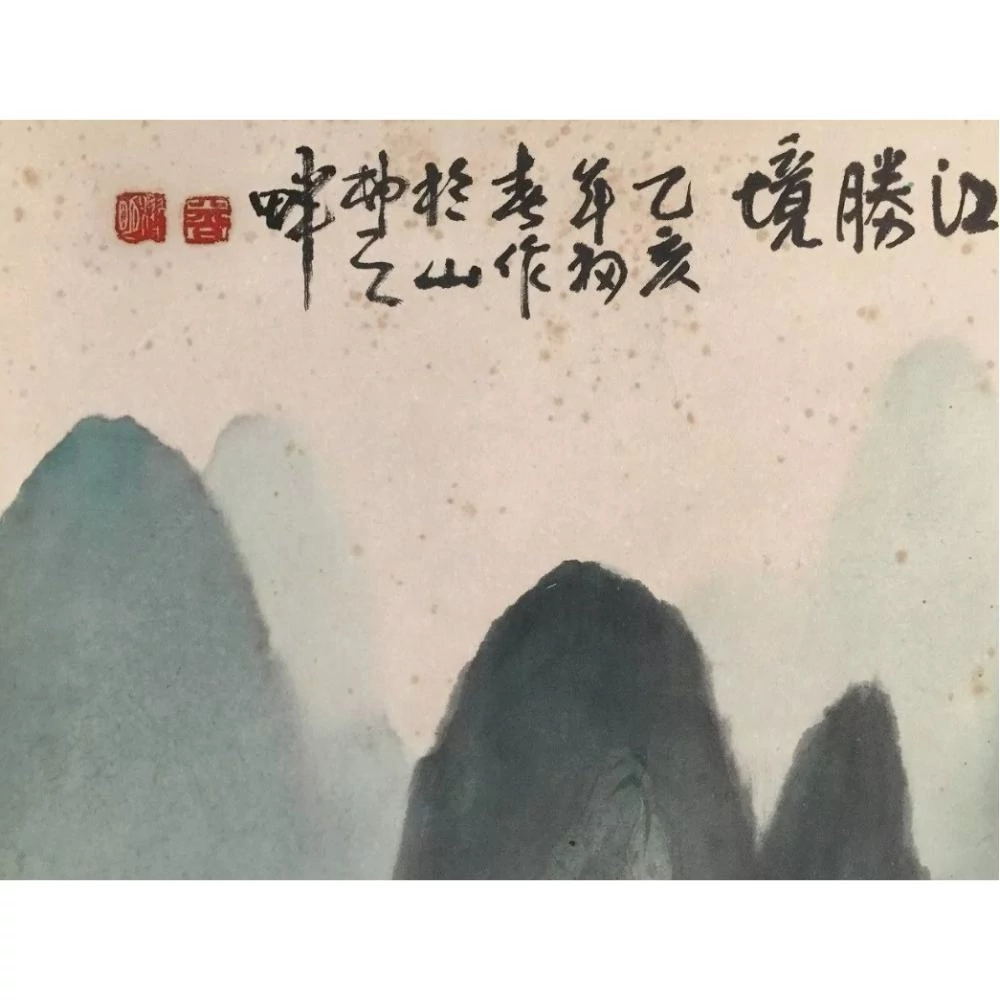 江勝境
乙亥
年初
春作
於山
之
畔